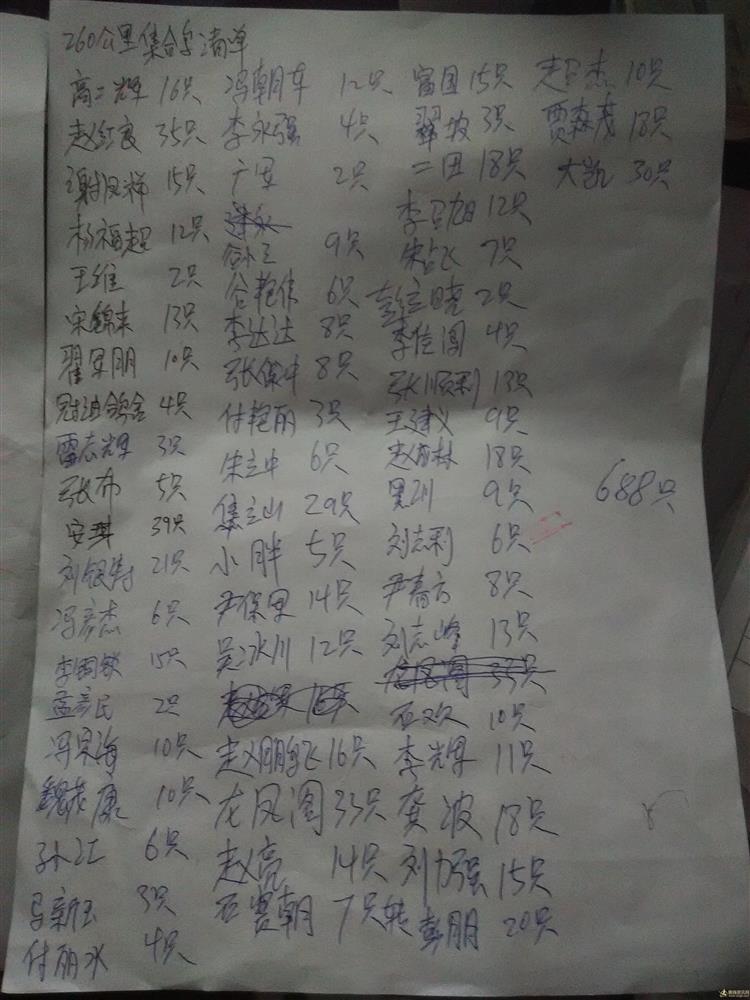 260公里集合鸽清单
高二辉 16只 冯朝车 12只 富国 15只 赵卫杰 10只
赵红良 35只 李永强 4只 翠坡 3只 贾森茂 18只
谢凤祥 15只 广军 2只 二田 18只 大凯 30只
杨福超 12只 9只 李卫旭 12只
王维 2只 谷艳伟 6只 宋占飞 7只
宋锦来 13只 李达达 8只 彭晓 2只
翟军朋 10只 张保中 8只 李信闯 4只
冠迪鸽舍 4只 付艳丽 3只 张顺利 13只
雷志辉 3只 朱立中 6只 王建义 9只
张布 5只 集立山 29只 赵 林 18只
安琪 39只 小胖 5只 9只
刘银涛 21只 尹保军 14只 刘志利 6只
冯彦杰 6只 吴冰川 12只 尹春方 8只
李国锁 15只 刘志峰 13只
孟彦民 2只 赵鹏飞 16只 石欢 10只
冯军海 10只 龙凤阁 33只 李辉 11只
魏老康 10只 赵亮 14只 龚波 18只
孙江 6只 石贺朝 7只转 刘力强 15只
马新玉 3只 彭朋 20只
付丽水 4只
688只